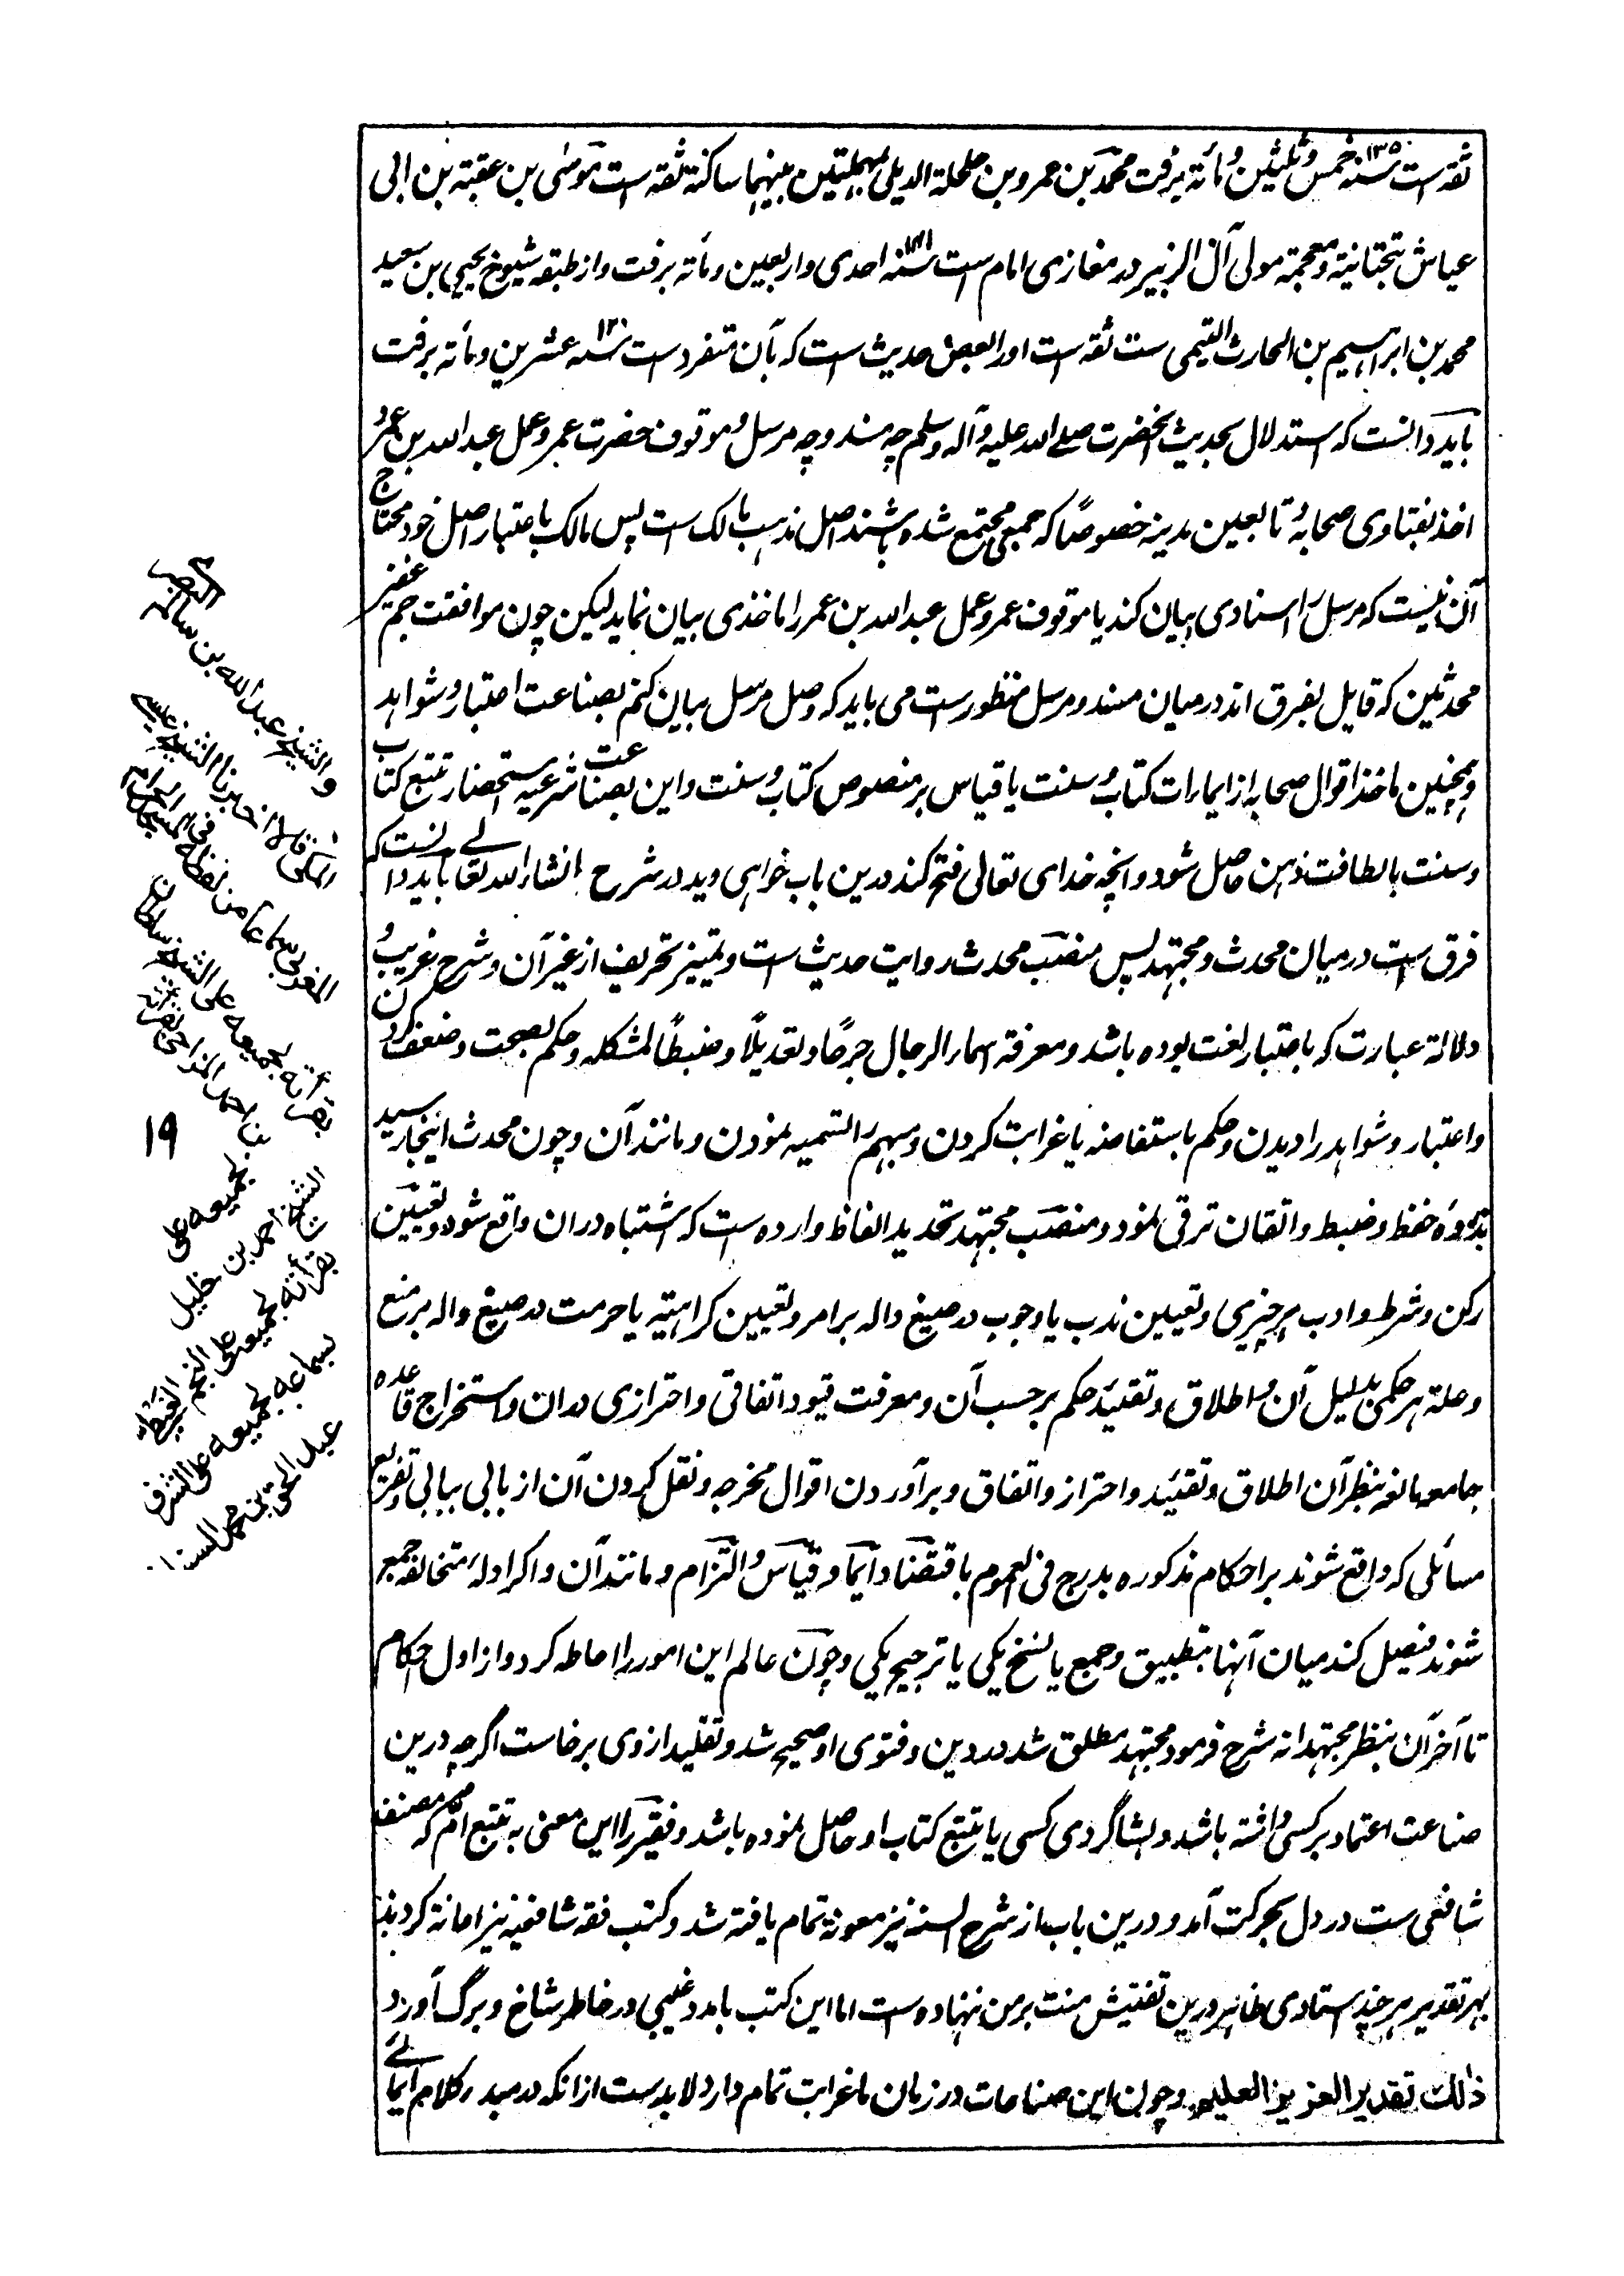 ثقه است ۱۳۵ سنه خمس و ثلثین و مأته برفت محمد بن عمرو بن حلحلة الدیلی بمهملتین بینهما ساکنة ثقه است موسی بن عقبة بن ابی
عیاش بتحتانیة و معجمة مولی آل الزبیر در مغازی امام است ۱۴۱ سنه احدی و اربعین و مأته برفت و از طبقه شیوخ یحیی بن سعید
محمد بن ابراهیم بن الحارث التیمی ست ثقه است اورا بعض حدیث است که بآن متفرد است ۱۲۰ سنه عشرین و مأته برفت
باید دانست که استدلال بحدیث آنحضرت صلے الله علیه و آله وسلم چه مسند و چه مرسل و موقوف حضرت عمر و عمل عبد الله بن عمر و
اخذ بفتاوی صحابه و تابعین مدینه خصوصاً که جمعی مجتمع شده باشند اصل مذهب مالک است پس مالک باعتبار اصل خود محتاج
آن نیست که مرسل را اسنادی بیان کند یا موقوف عمر و عمل عبد الله بن عمر را ماخذی بیان نماید لیکن چون موافقت جم غفیر
محدثین که قایل بفرق اند در میان مسند و مرسل منظور ست می باید که وصل مرسل بیان کنم بصناعت اعتبار و شواهد
و همچنین ماخذ اقوال صحابه از ایمارات کتاب و سنت یا قیاس بر منصوص کتاب و سنت و این بصناعت شرعیه استحضار تتبع کتاب
و سنت بالطافت ذهن حاصل شود و آنچه خدای تعالی فتح کند درین باب خواهی دید در شرح انشاء الله تعالے باید دانست که
فرق است در میان محدث و مجتهد پس منصب محدث روایت حدیث است و تمییز تحریف از غیر آن و شرح غریب و
دلالة عبارت که باعتبار لغت بوده باشد و معرفة اسماء الرجال جرحاً و تعدیلاً و ضبطاً لمشکله و حکم بصحت و ضعف کردن
و اعتبار و شواهد را دیدن و حکم باستفاضه یا غرابت کردن و مبهم را تسمیه نمودن و مانند آن و چون محدث اینجا رسید
بذروه حفظ و ضبط و اتقان ترقی نمود و منصب مجتهد تحدید الفاظ وارده است که اشتباه دران واقع شود و تعیین
رکن و شرط و ادب هر چیزی و تعیین ندب یا وجوب در صیغ داله بر امر و تعیین کراهیة یا حرمت در صیغ داله بر منع
و علة هر حکمی بدلیل آن و اطلاق و تقئید حکم بر حسب آن و معرفت قیود اتفاقی و احترازی دران و استخراج قاعده
جامعه مانعه بنظر آن اطلاق و تقئید و احتراز و اتفاق و بر آوردن اقوال مخرجه و نقل کردن آن از بابی ببابی و تفریع
مسائلی که واقع شوند بر احکام مذکوره بدرج فی العموم باقتضا و ایما و قیاس و التزام و مانند آن و اگر ادله متخالفه جمع
شوند فیصل کند میان آنها بتطبیق و جمع یا نسخ یکی یا ترجیح یکی و چون عالم این امور را احاطه کرد و از اول احکام
تا آخر آن بنظر مجتهدانه شرح فرمود مجتهد مطلق شد در دین و فتوی او صحیح شد و تقلید از وی برخاست اگرچه درین
صناعت اعتماد بر کسی داشته باشد و بشاگردی کسی یا بتتبع کتاب او حاصل نموده باشد و فقیر را این معنی به تتبع ام که مصنف
شافعی ست در دل بحرکت آمد و درین باب از شرح السنه نیز معونة تمام یافته شد و کتب فقه شافعیه نیز اعانة کردند
بهر تقدیر هر چند استادی ظاهر درین تفتیش منت بر من ننهاده ست اما این کتب بامدد غیبی در خاطر شاخ و برگ آورد
ذلك تقدیر العزیز العلیم و چون این صناعات در زمان ما غرابت تمام دارد لا بد ست از انکه در مبدء کلام ایمائے
والشیخ عبد الله بن سالم البصری
المکی قالا اخبرنا الشیخ عیسی
المغربی سماعا من لفظه فی المسجد الحرام
بقرأته بجمیعه علی الشیخ سلطان
بن احمد المزاحی بقرأته
بجمیعه علی
الشیخ احمد بن خلیل
بقرأته بجمیعه علی النجم الغیطی
بسماعه بجمیعه علی الشرف
عبد الحق بن محمد السنباطی
۱۹